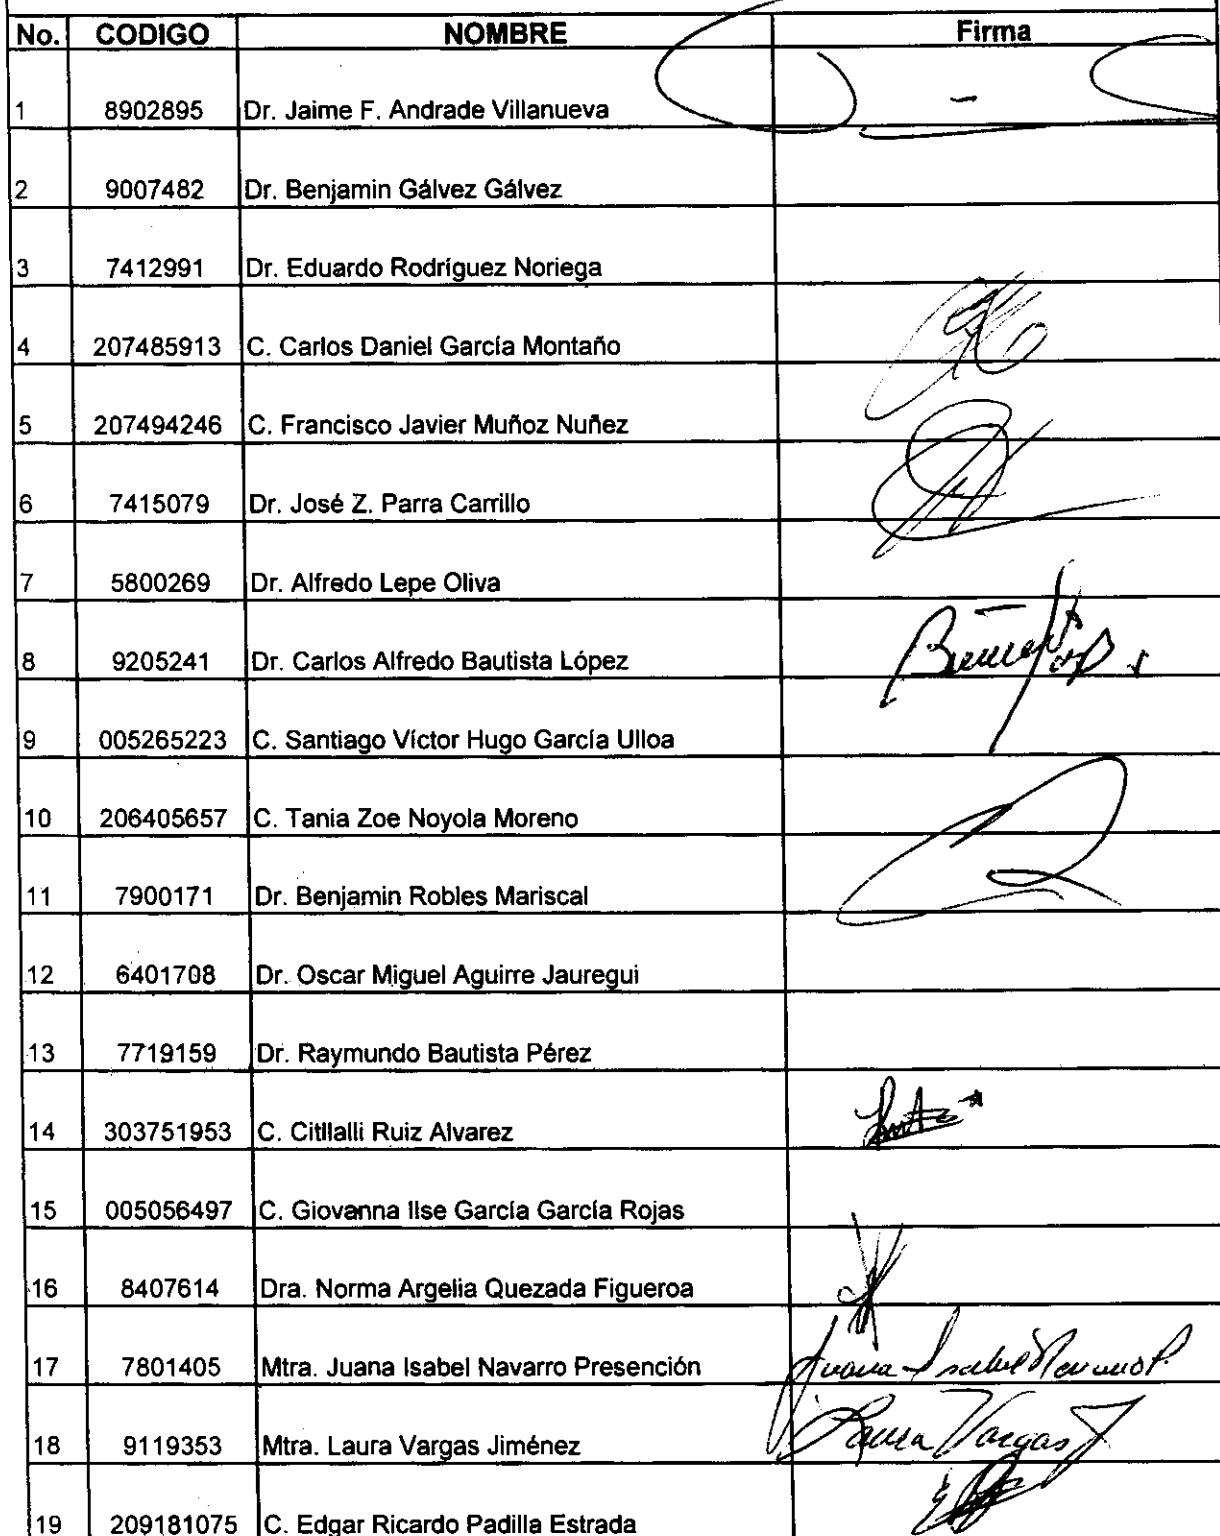 No. CODIGO NOMBRE Firma
1 8902895 Dr. Jaime F. Andrade Villanueva
2 9007482 Dr. Benjamin Gálvez Gálvez
3 7412991 Dr. Eduardo Rodríguez Noriega
4 207485913 C. Carlos Daniel García Montaño
5 207494246 C. Francisco Javier Muñoz Nuñez
6 7415079 Dr. José Z. Parra Carrillo
7 5800269 Dr. Alfredo Lepe Oliva
8 9205241 Dr. Carlos Alfredo Bautista López
9 005265223 C. Santiago Víctor Hugo García Ulloa
10 206405657 C. Tania Zoe Noyola Moreno
11 7900171 Dr. Benjamin Robles Mariscal
12 6401708 Dr. Oscar Miguel Aguirre Jauregui
13 7719159 Dr. Raymundo Bautista Pérez
14 303751953 C. Citllalli Ruiz Alvarez
15 005056497 C. Giovanna Ilse García García Rojas
16 8407614 Dra. Norma Argelia Quezada Figueroa
17 7801405 Mtra. Juana Isabel Navarro Presención Juana Isabel Navarro P.
18 9119353 Mtra. Laura Vargas Jiménez Laura Vargas J
19 209181075 C. Edgar Ricardo Padilla Estrada